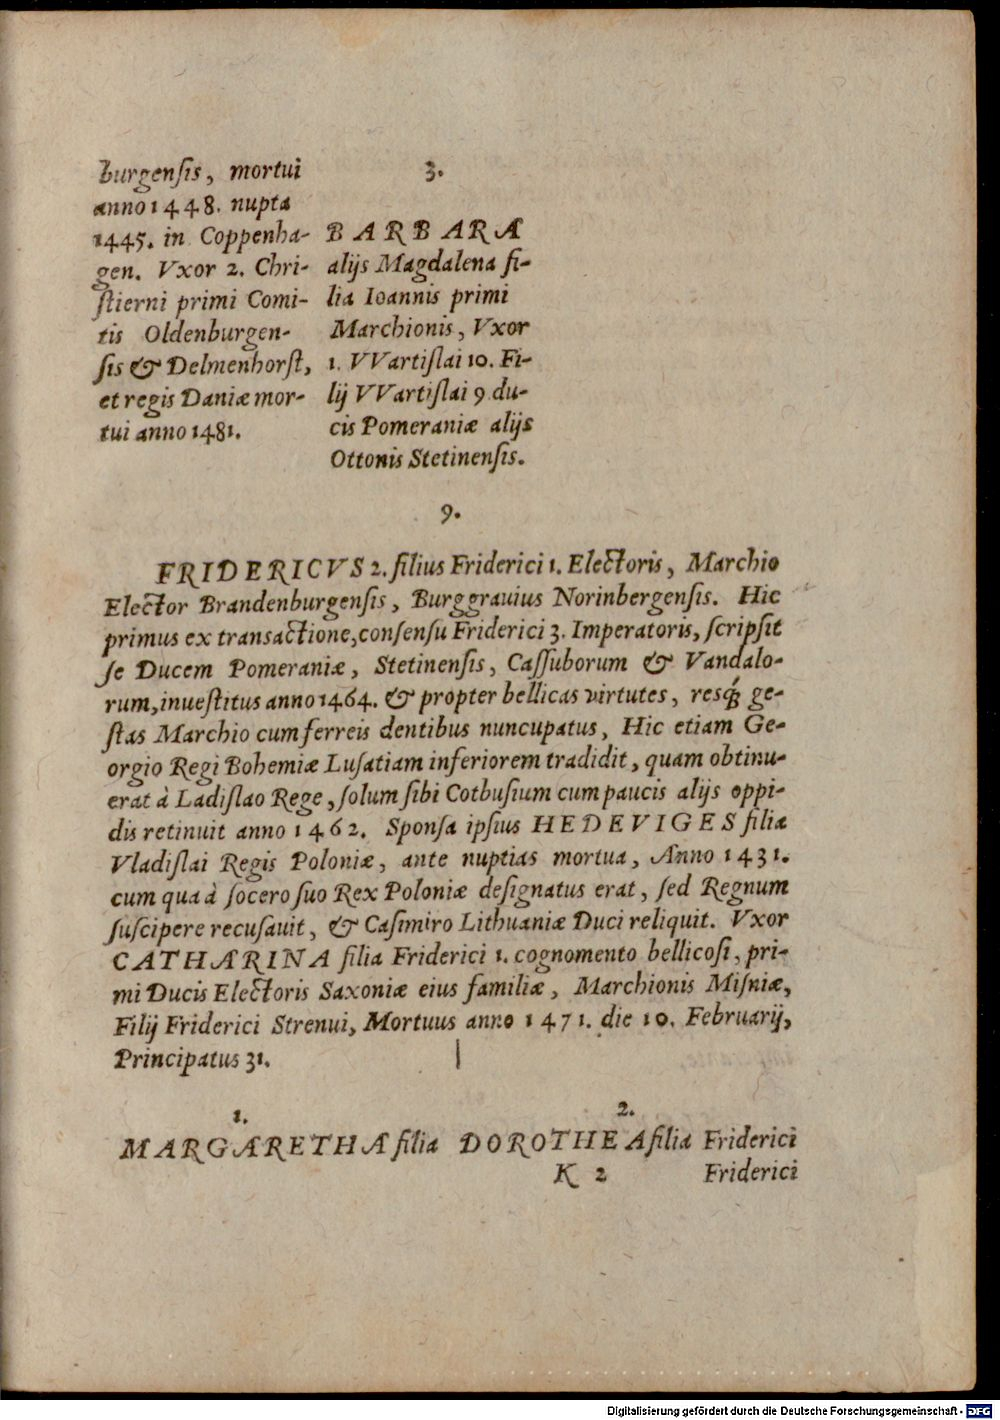 Burgensis, mortui
anno 1448. nupta
1445. in Coppenha-
gen. Vxor 2. Chri-
stierni primi Comi-
tis Oldenburgen-
sis & Delmenhorst,
et regis Daniæ mor-
tui anno 1481.
3.
BARBARA
alijs Magdalena fi-
lia Ioannis primi
Marchionis, Vxor
1. VVartislai 10. Fi-
lij VVartislai 9 du-
cis Pomeraniæ alijs
Ottonis Stetinensis.
9.
FRIDERICVS 2. filius Friderici 1. Electoris, Marchio
Elector Brandenburgensis, Burggrauius Norinbergensis. Hic
primus ex transactione, consensu Friderici 3. Imperatoris, scripsit
se Ducem Pomeraniæ, Stetinensis, Cassuborum & Vandalo-
rum, inuestitus anno 1464. & propter bellicas virtutes, resq́; ge-
stas Marchio cum ferreis dentibus nuncupatus, Hic etiam Ge-
orgio Regi Bohemiæ Lusatiam inferiorem tradidit, quam obtinu-
erat à Ladislao Rege, solum sibi Cotbusium cum paucis alijs oppi-
dis retinuit anno 1462. Sponsa ipsius HEDEVIGES filia
Vladislai Regis Poloniæ, ante nuptias mortua, Anno 1431.
cum qua à socero suo Rex Poloniæ designatus erat, sed Regnum
suscipere recusauit, & Casimiro Lithuaniæ Duci reliquit. Vxor
CATHARINA filia Friderici 1. cognomento bellicosi, pri-
mi Ducis Electoris Saxoniæ eius familiæ, Marchionis Misniæ,
Filij Friderici Strenui, Mortuus anno 1471. die 10. Februarij,
Principatus 31.
1.
MARGARETHA filia
2.
DOROTHEA filia Friderici
K 2
Friderici
Digitalisierung gefördert durch die Deutsche Forschungsgemeinschaft - DFG